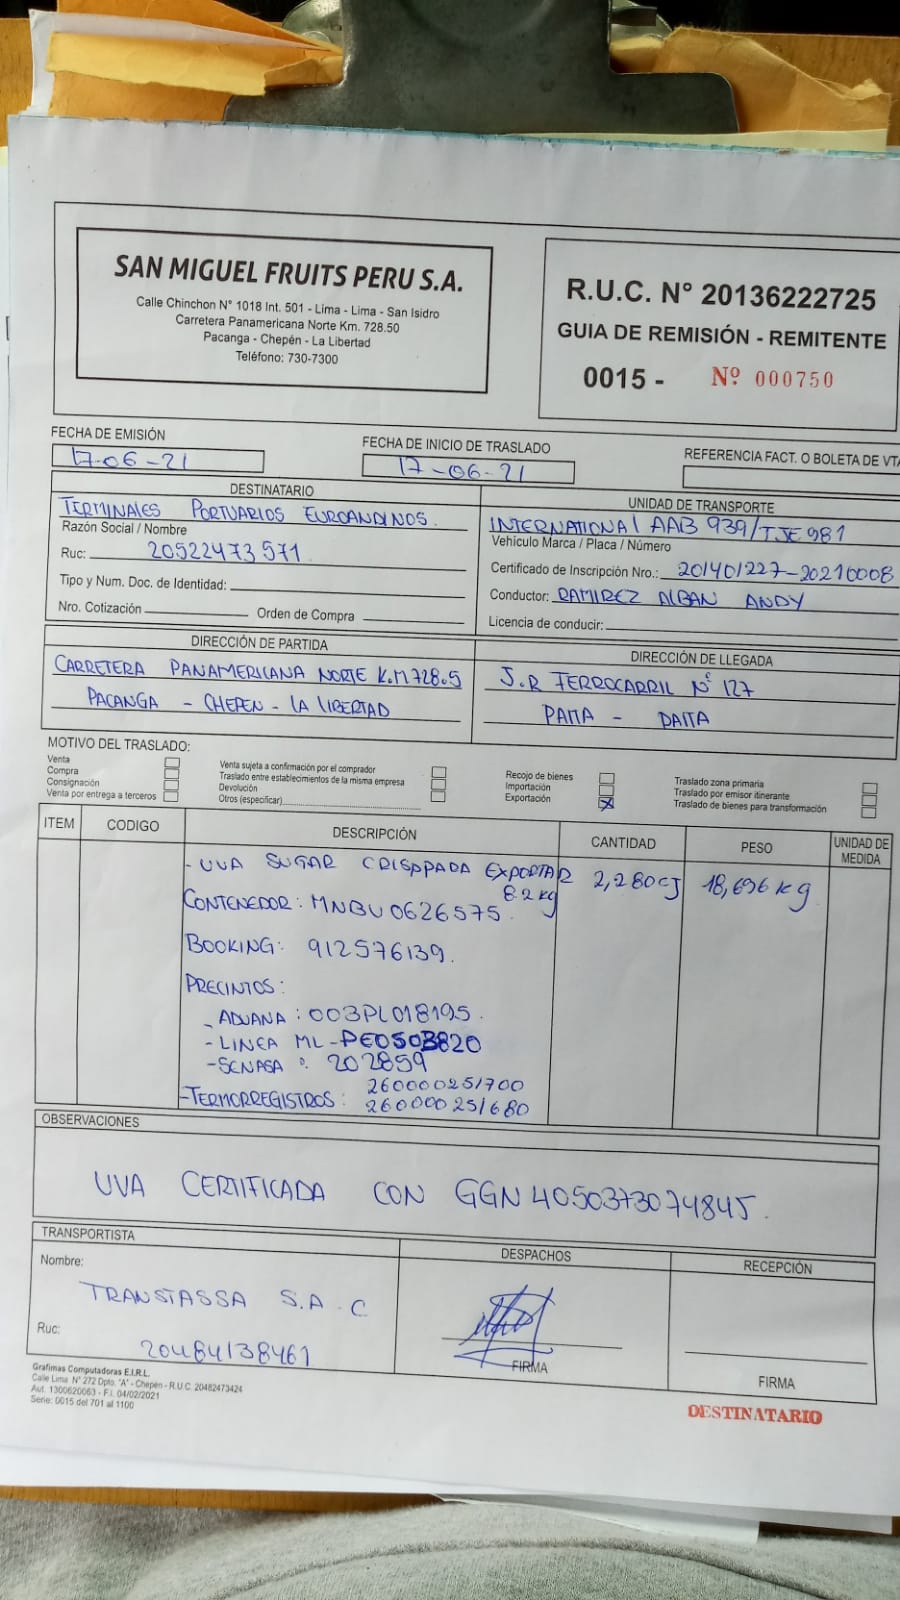 SAN MIGUEL FRUITS PERU S.A.
Calle Chinchon N° 1018 Int. 501 - Lima - Lima - San Isidro
Carretera Panamericana Norte Km. 728.50
Pacanga - Chepén - La Libertad
Teléfono: 730-7300
R.U.C. N° 20136222725
GUIA DE REMISIÓN - REMITENTE
0015 - Nº 000750
FECHA DE EMISIÓN
17-06-21
FECHA DE INICIO DE TRASLADO
17-06-21
REFERENCIA FACT. O BOLETA DE VTA
DESTINATARIO
TERMINALES PORTUARIOS EUROANDINOS.
Razón Social / Nombre
Ruc: 20522473571
Tipo y Num. Doc. de Identidad:
Nro. Cotización Orden de Compra
UNIDAD DE TRANSPORTE
INTERNATIONAL AAB 939/TJE981
Vehículo Marca / Placa / Número
Certificado de Inscripción Nro.: 201401227-20210008
Conductor: RAMIREZ ALBAN ANDY
Licencia de conducir:
DIRECCIÓN DE PARTIDA
CARRETERA PANAMERICANA NORTE K.M 728.5
PACANGA - CHEPEN - LA LIBERTAD
DIRECCIÓN DE LLEGADA
J.R FERROCARRIL Nº 127
PAITA - PAITA
MOTIVO DEL TRASLADO:
Venta
Compra
Consignación
Venta por entrega a terceros
Venta sujeta a confirmación por el comprador
Traslado entre establecimientos de la misma empresa
Devolución
Otros (especificar)
Recojo de bienes
Importación
Exportación X
Traslado zona primaria
Traslado por emisor itinerante
Traslado de bienes para transformación
ITEM CODIGO DESCRIPCIÓN CANTIDAD PESO UNIDAD DE MEDIDA
- UVA SUGAR CRISP PARA EXPORTAR 2,280 CJ 18,696 kg
8.2 kg
CONTENEDOR: MNBU0626575.
BOOKING: 912576139.
PRECINTOS:
- ADUANA: 003PL018195.
- LINEA ML-PE0503820
- SENASA: 202859
260000251700
- TERMORREGISTROS: 260000251680
OBSERVACIONES
UVA CERTIFICADA CON GGN 4050373074845.
TRANSPORTISTA
Nombre:
TRANSTASSA S.A.C
Ruc:
20484138461
DESPACHOS
FIRMA
RECEPCIÓN
FIRMA
Grafimas Computadoras E.I.R.L.
Calle Lima N° 272 Dpto. "A" - Chepén - R.U.C. 20482473424
Aut. 1300620063 - F.I. 04/02/2021
Serie: 0015 del 701 al 1100
DESTINATARIO